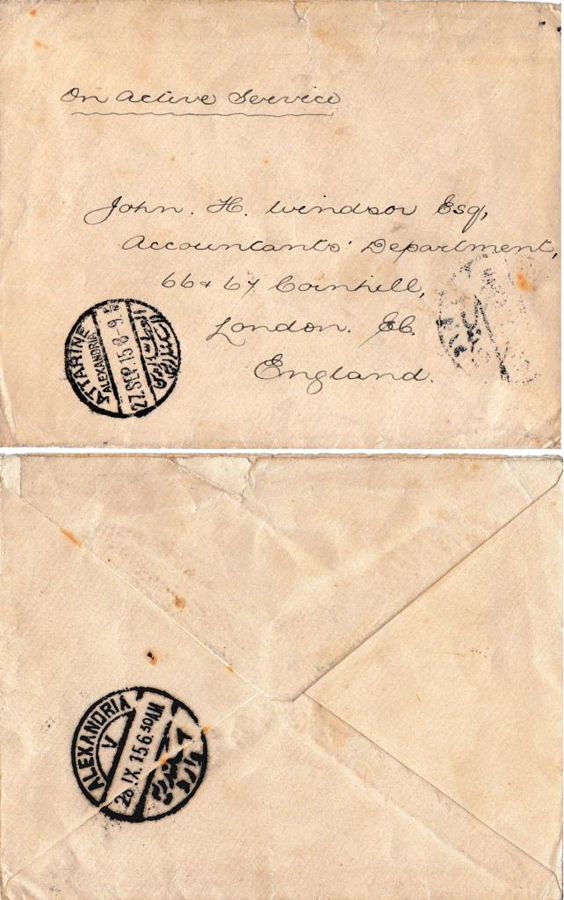 On Active Service
John. H. Windsor Esq,
Accountants' Department,
66 & 67 Cornhill,
London. EC.
England.
ATTARINE
ALEXANDRIA
27.SEP.15.8-9.
ALEXANDRIA
V
IX.15.6.30AM